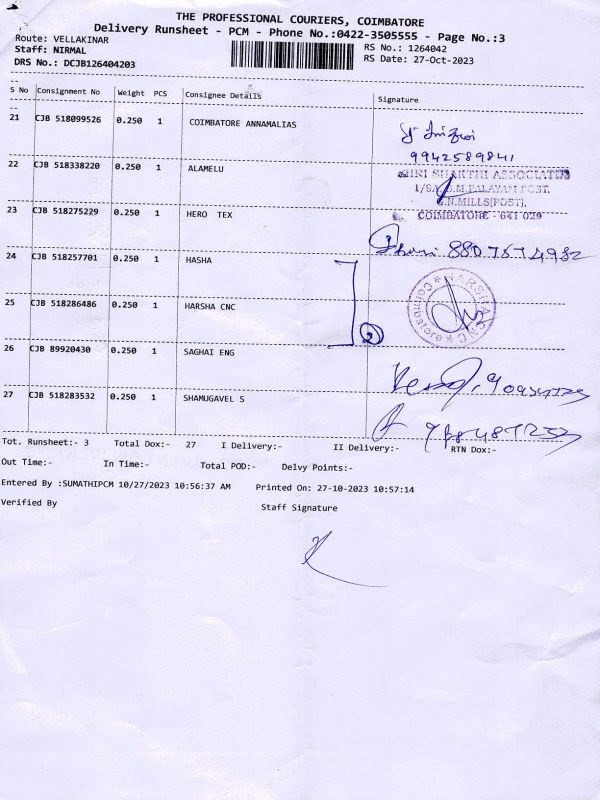 THE PROFESSIONAL COURIERS, COIMBATORE
Delivery Runsheet - PCM - Phone No.:0422-3505555 - Page No.:3
Route: VELLAKINAR
RS No.: 1264042
Staff: NIRMAL
RS Date: 27-Oct-2023
DRS No.: DCJB126404203
S No Consignment No Weight PCS Consignee Details Signature
21 CJB 518099526 0.250 1 COIMBATORE ANNAMALIAS
9942589841
22 CJB 518338220 0.250 1 ALAMELU
SHRI SHAKTHI ASSOCIATES
G.N.MILLS(POST),
COIMBATORE - 641 029
23 CJB 518275229 0.250 1 HERO TEX
24 CJB 518257701 0.250 1 HASHA
25 CJB 518286486 0.250 1 HARSHA CNC
2
HARSHA CNC
Coimbatore
26 CJB 89920430 0.250 1 SAGHAI ENG
27 CJB 518283532 0.250 1 SHAMUGAVEL S
Tot. Runsheet:- 3 Total Dox:- 27 I Delivery:- II Delivery:- RTN Dox:-
Out Time:- In Time:- Total POD:- Delvy Points:-
Entered By :SUMATHIPCM 10/27/2023 10:56:37 AM Printed On: 27-10-2023 10:57:14
Verified By Staff Signature